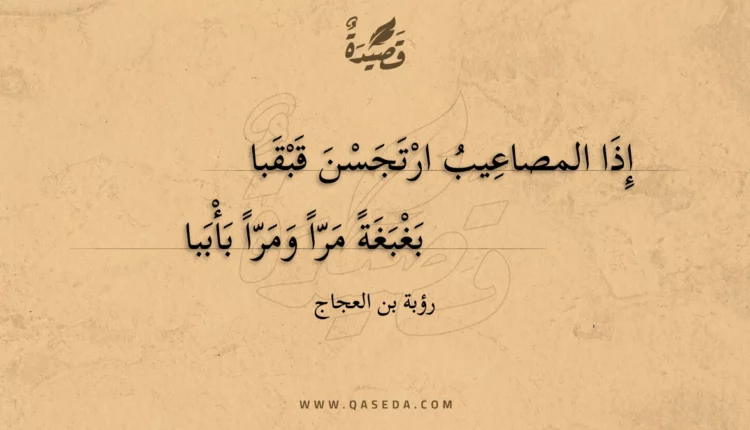 قَصِيدَةٌ
إِذَا المصاعِيبُ ارْتَجَسْنَ قَبْقَبا
بَغْبَغَةً مَرّاً وَمَرّاً بَأْبَبا
رؤبة بن العجاج
WWW.QASEDA.COM